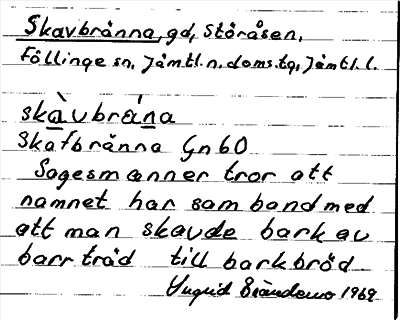 Skavbränna, gd, Störåsen,
Föllinge sn, Jämtl. n. doms. tg, Jämtl. l.
skàvbrána
Skafbränna Gn 60
Sagesmänner tror att
namnet har samband med
att man skavde bark av
barrträd till barkbröd
Ingrid 1969